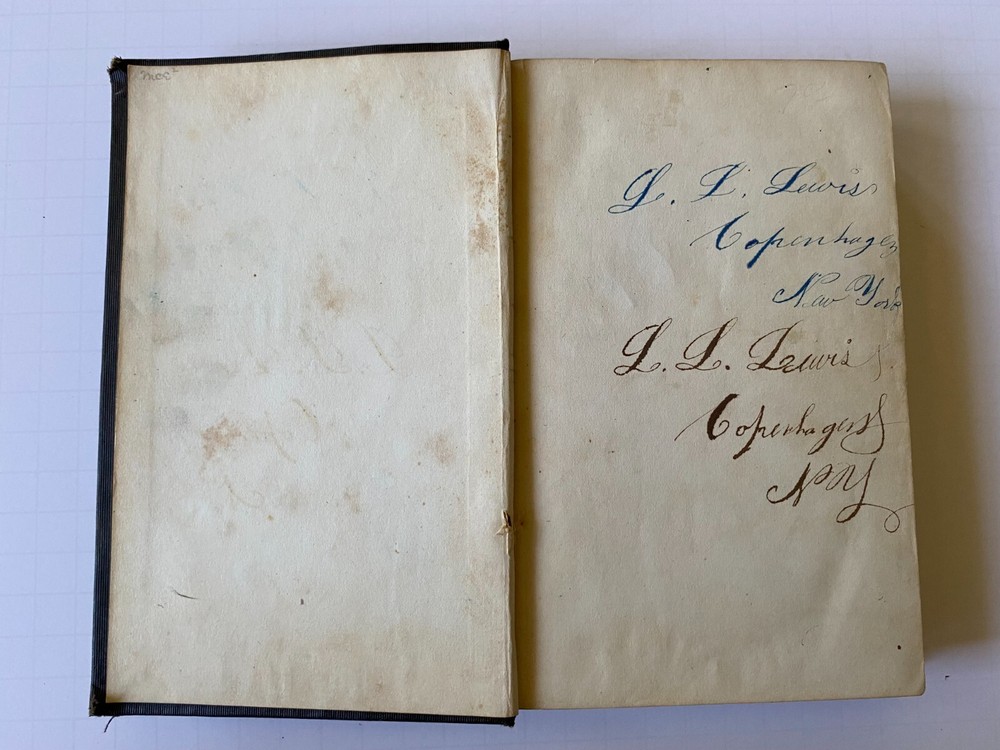 L. L. Lewis
Copenhagen
New York
L. L. Lewis
Copenhagen
N Y